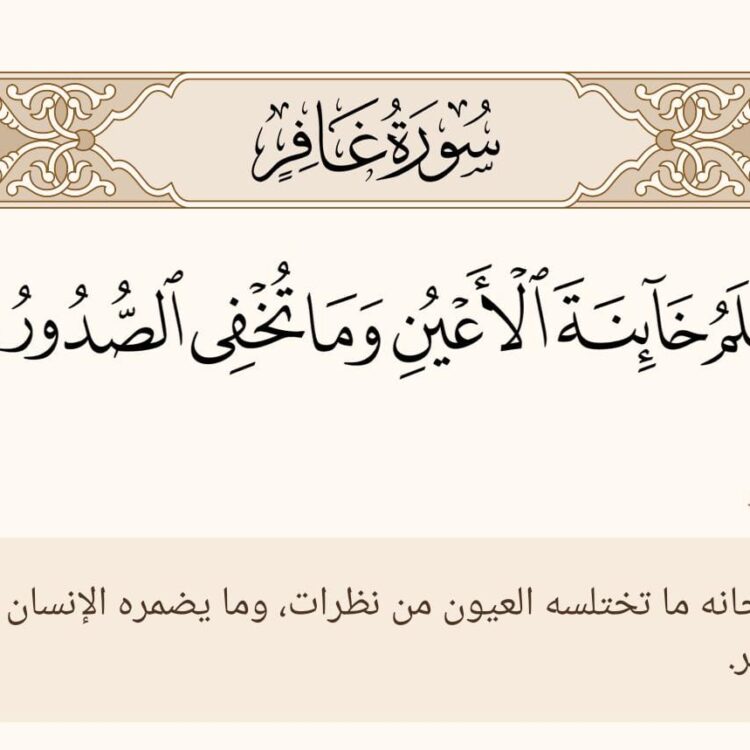 سُورَةُ غَافِرٍ
لَمُ خَآئِنَةَ ٱلْأَعْيُنِ وَمَا تُخْفِى ٱلصُّدُورُ
حانه ما تختلسه العيون من نظرات، وما يضمره الإنسان
ر.